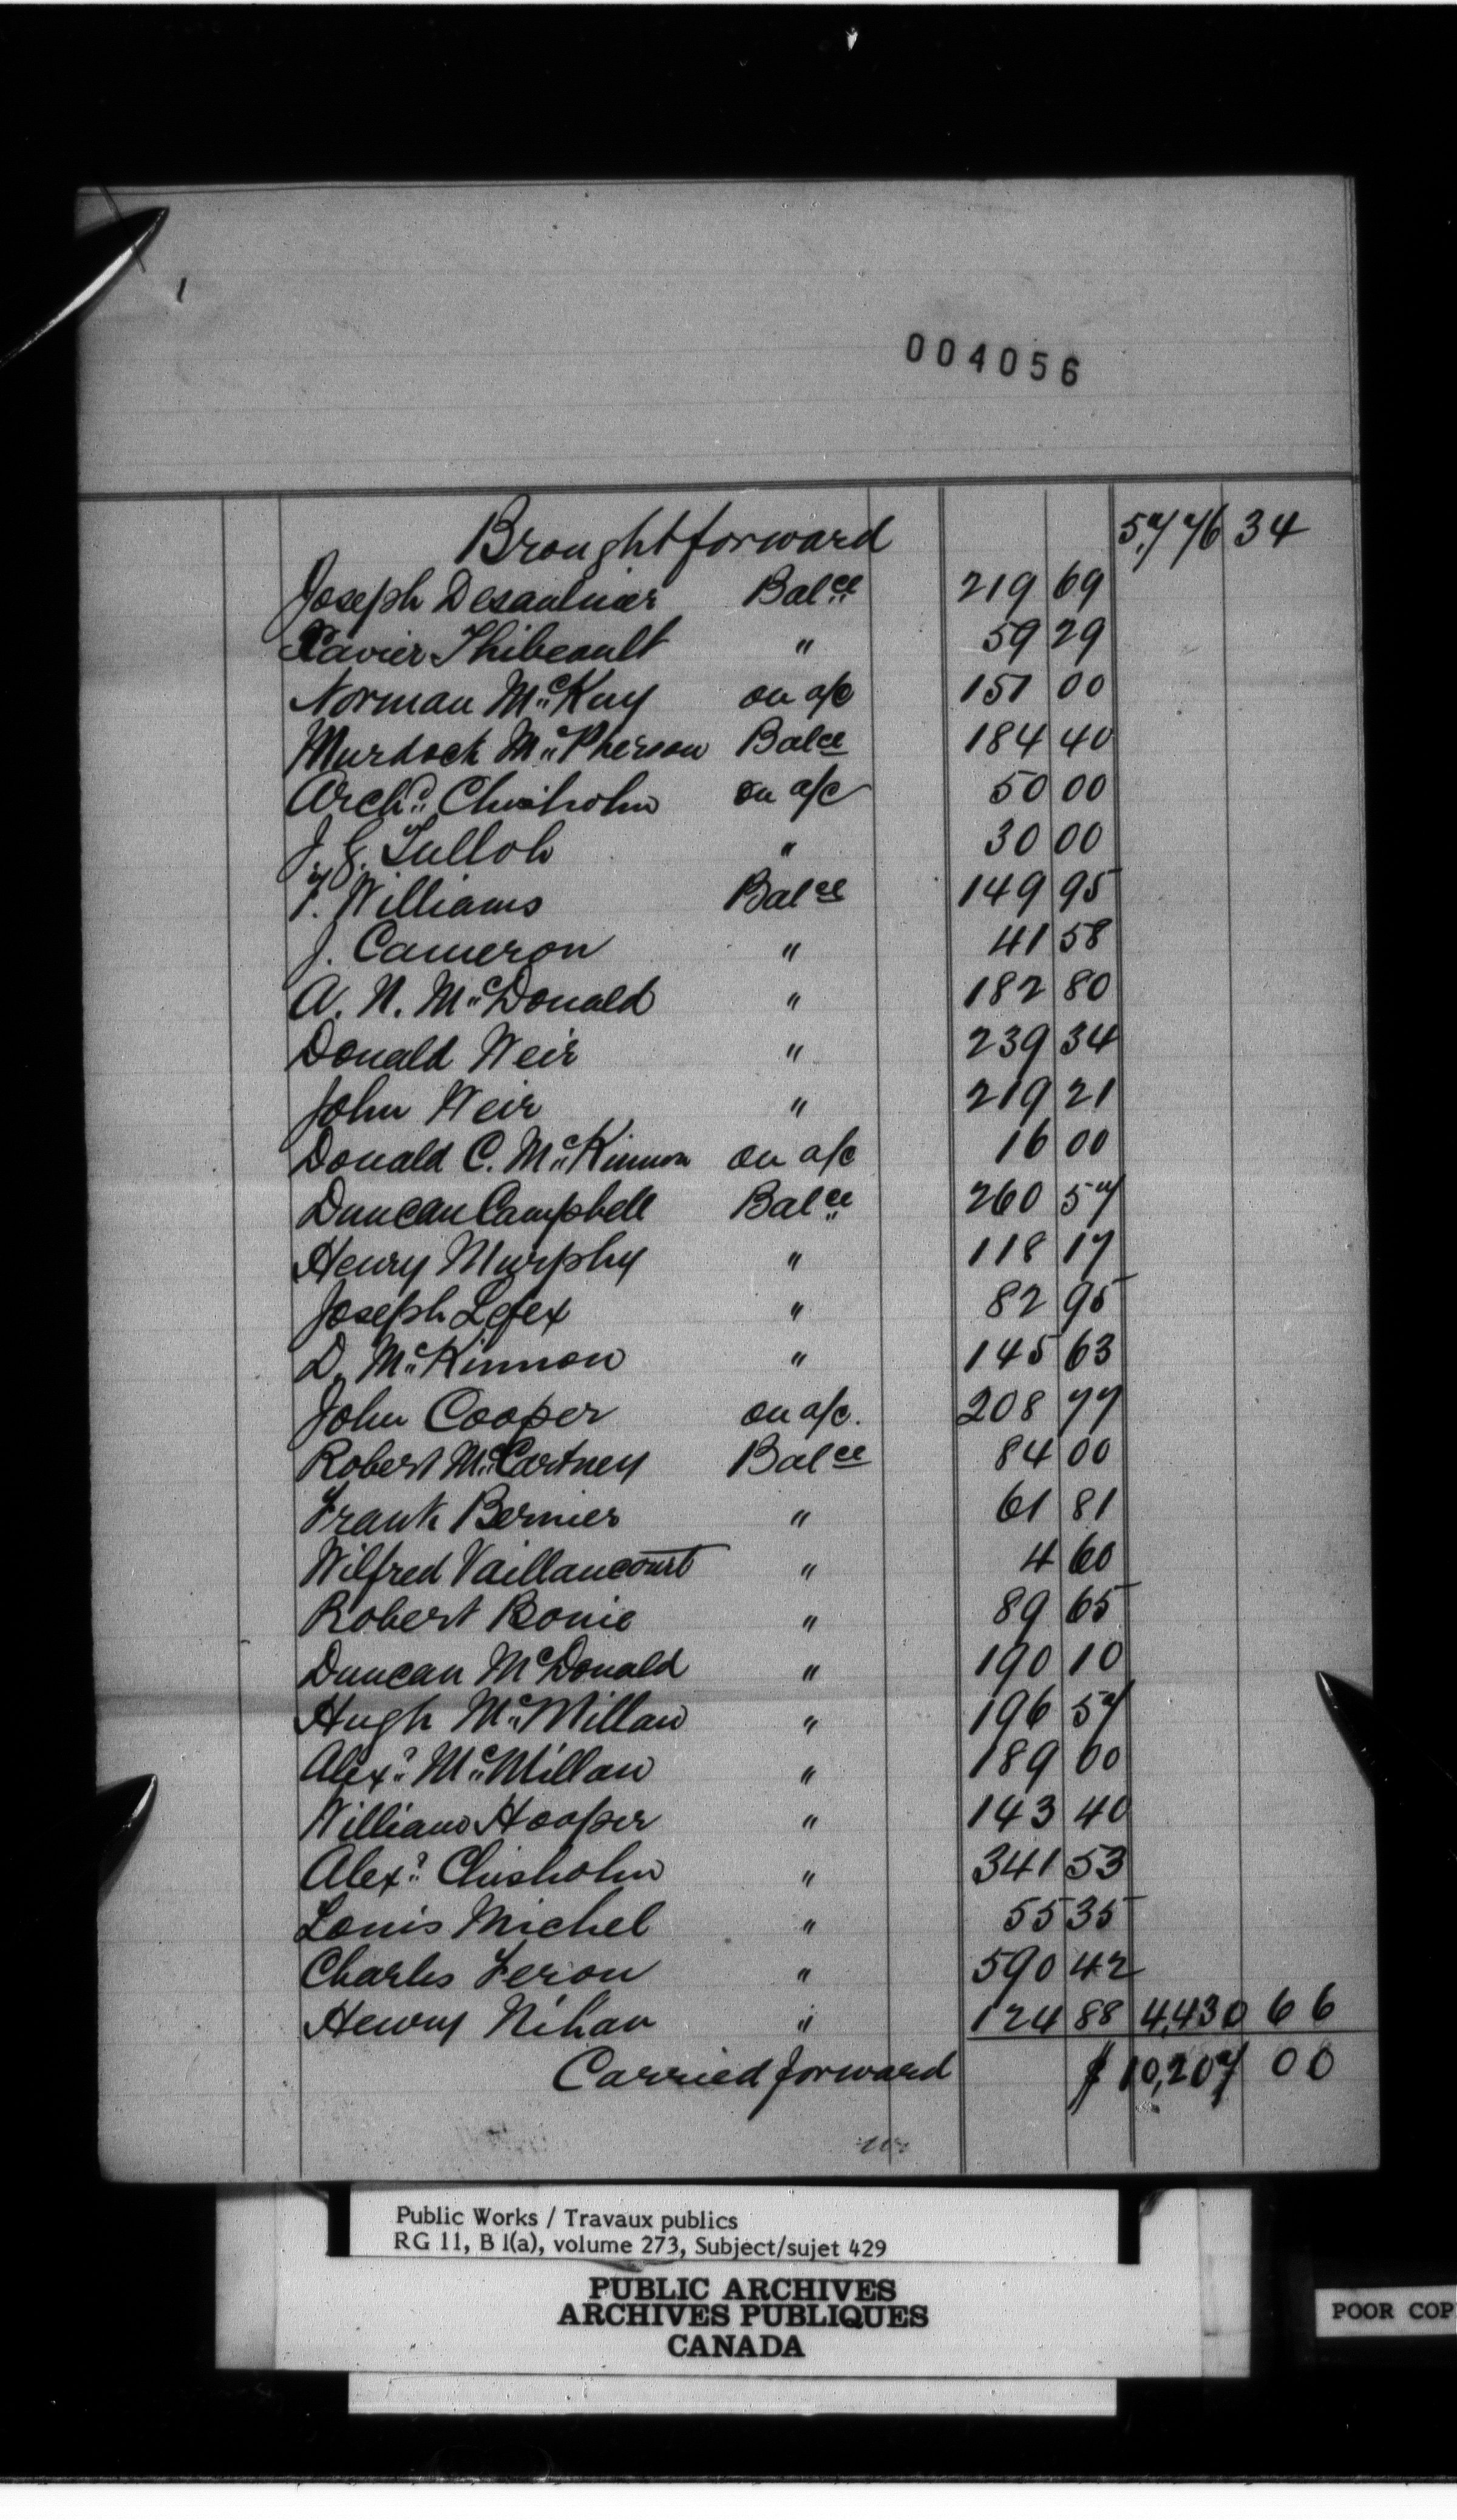 004056
Brought forward 5,776 34
Joseph Desaulnier Balce 219 69
Xavier Thibeault " 59 29
Norman McKay on a/c 151 00
Murdock McPherson Balce 184 40
Archd. Chisholm on a/c 50 00
J. G. Tulloh " 30 00
F. Williams Balce 149 95
J. Cameron " 41 58
A. N. McDonald " 182 80
Donald Weir " 239 34
John Weir " 219 21
Donald C. McKinnon on a/c 16 00
Duncan Campbell Balce 260 57
Henry Murphy " 118 17
Joseph Lefex " 82 95
D. McKinnon " 145 63
John Cooper on a/c. 208 77
Robert McCartney Balce 84 00
Frank Bernier " 61 81
Wilfred Vaillancourt " 4 60
Robert Bonie " 89 65
Duncan McDonald " 190 10
Hugh McMillan " 196 57
Alexr. McMillan " 189 00
William Hooper " 143 40
Alexr. Chisholm " 341 53
Louis Michel " 55 35
Charles Feron " 590 42
Henry Nihan " 124 88 4,430 66
Carried forward $ 10,207 00
Public Works / Travaux publics
RG 11, B 1(a), volume 273, Subject/sujet 429
PUBLIC ARCHIVES
ARCHIVES PUBLIQUES
CANADA
POOR COP